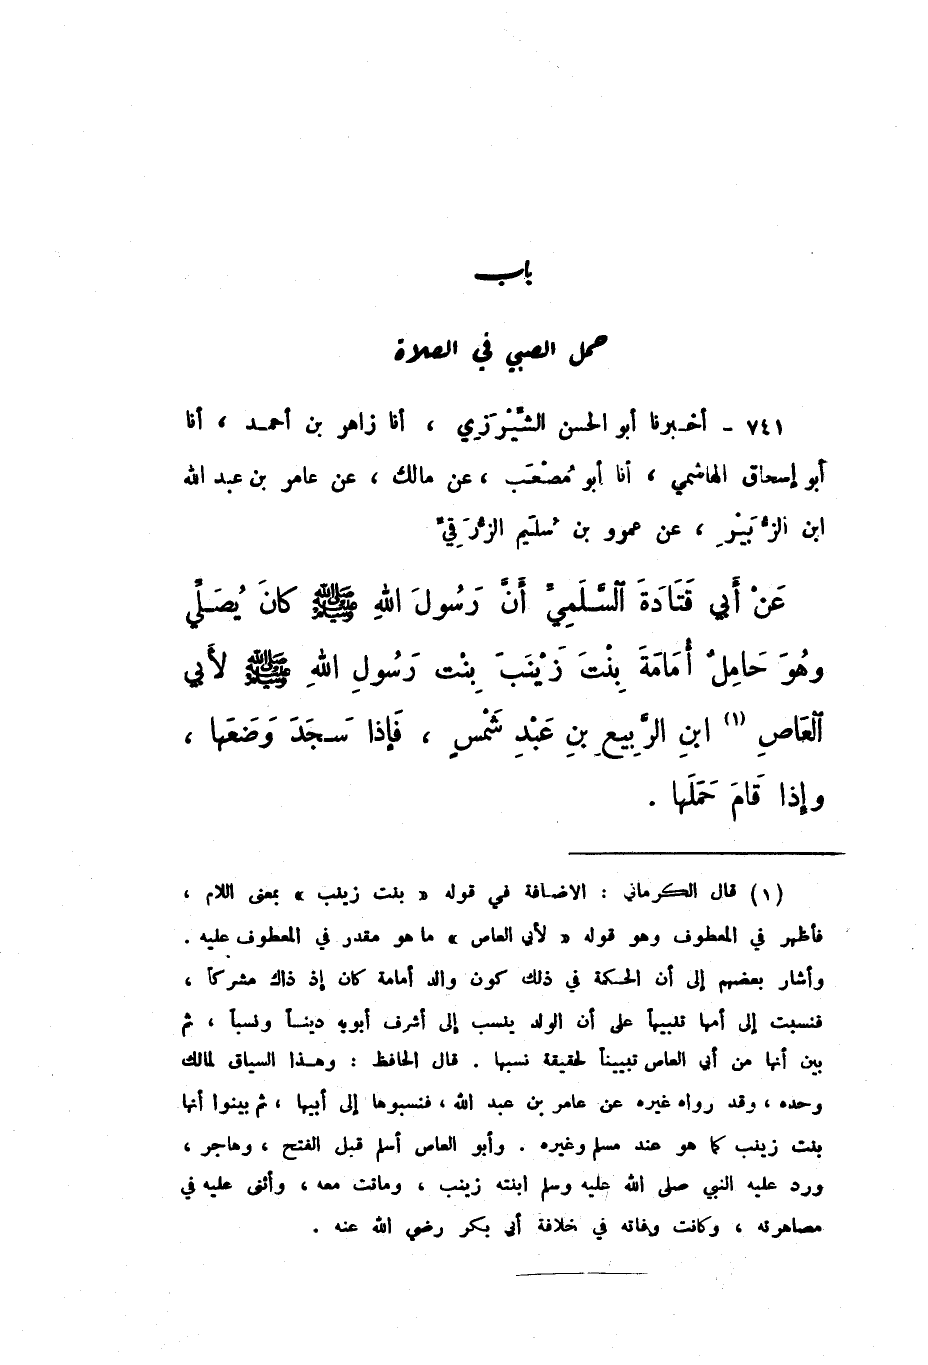 باب
حمل الصبي في الصلاة
٧٤١ - أخبرنا أبو الحسن الشَّيْرَزي ، أنا زاهر بن أحمد ، أنا
أبو إسحاق الهاشمي ، أنا أبو مُصْعَب ، عن مالك ، عن عامر بن عبد الله
ابن الزُّبَيْرِ ، عن عمرو بن سُليَم الزُّرَقيِّ
عَنْ أَبي قَتَادَةَ السَّلَمِيِّ أَنَّ رَسُولَ اللهِ ﷺ كانَ يُصَلِّي
وهُوَ حَامِلٌ أُمَامَةَ بِنْتَ زَيْنَبَ بِنْت رَسُولِ اللهِ ﷺ لأَبي
العَاصِ (١) ابنِ الرَّبِيعِ بنِ عَبْدِ شَمْسٍ ، فَإذا سَجَدَ وَضَعَها ،
وإذا قَامَ حَمَلَها .
(١) قال الكرماني : الاضافة في قوله « بنت زينب » بمعنى اللام ،
فأظهر في المعطوف وهو قوله « لأبي العاص » ما هو مقدر في المعطوف عليه .
وأشار بعضهم إلى أن الحكمة في ذلك كون والد أمامة كان إذ ذاك مشركاً ،
فنسبت إلى أمها تنبيهاً على أن الولد ينسب إلى أشرف أبويه ديناً ونسباً ، ثم
بين أنها من أبي العاص تبييناً لحقيقة نسبها . قال الحافظ : وهذا السياق لمالك
وحده ، وقد رواه غيره عن عامر بن عبد الله ، فنسبوها إلى أبيها ، ثم بينوا أنها
بنت زينب كما هو عند مسلم وغيره . وأبو العاص أسلم قبل الفتح ، وهاجر ،
ورد عليه النبي صلى الله عليه وسلم ابنته زينب ، وماتت معه ، وأثنى عليه في
مصاهرته ، وكانت وفاته في خلافة أبي بكر رضي الله عنه .